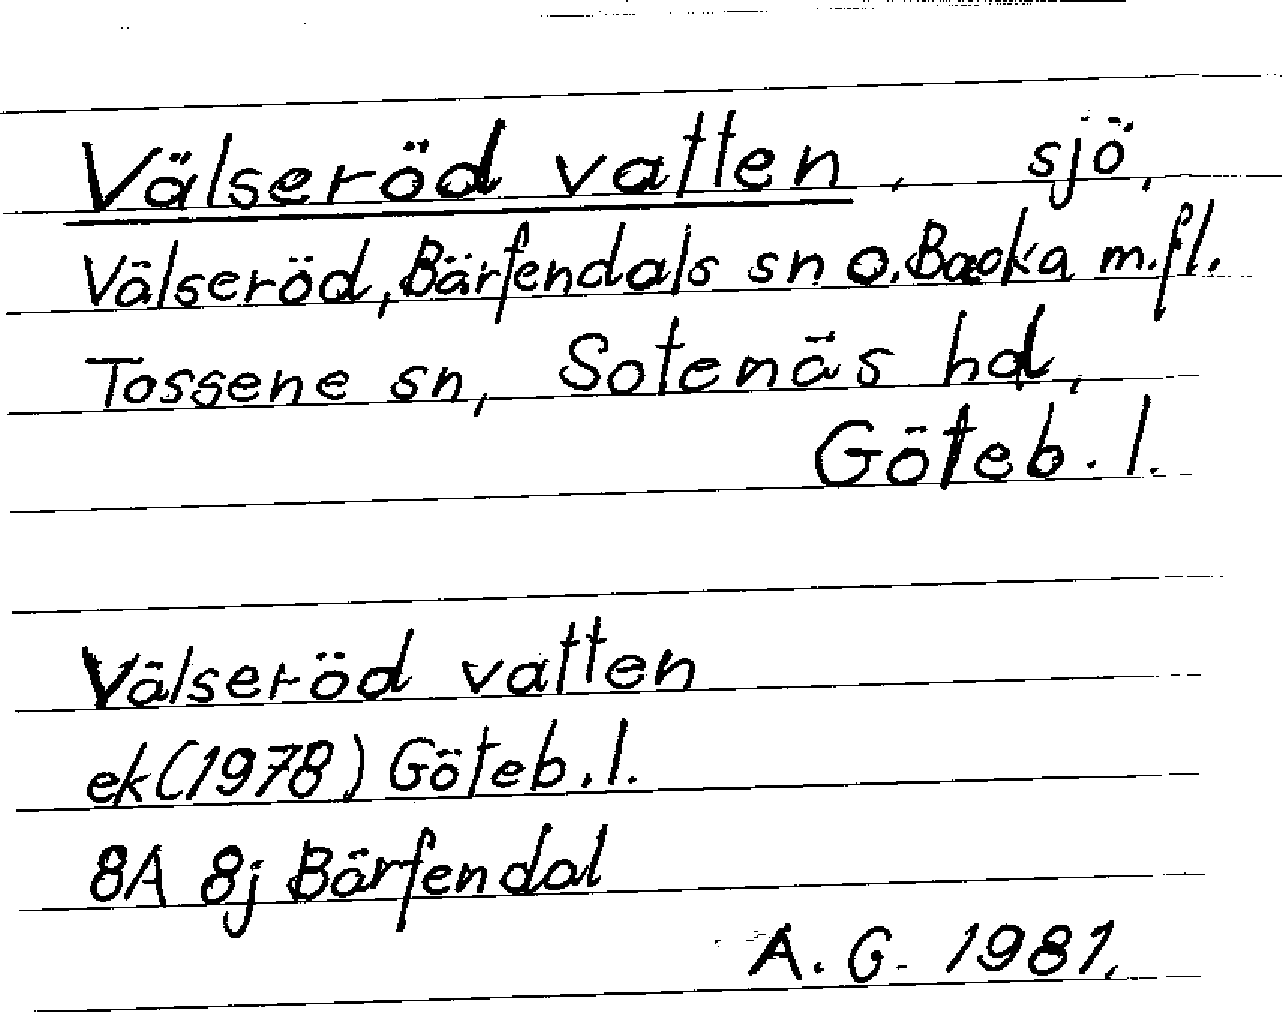 Välseröd vatten, sjö,
Välseröd, Bärfendals sn o. Backa m.fl.
Tossene sn, Sotenäs hd,
Göteb. l.
Välseröd vatten
ek (1978) Göteb. l.
8A 8j Bärfendal
A. G. 1981.